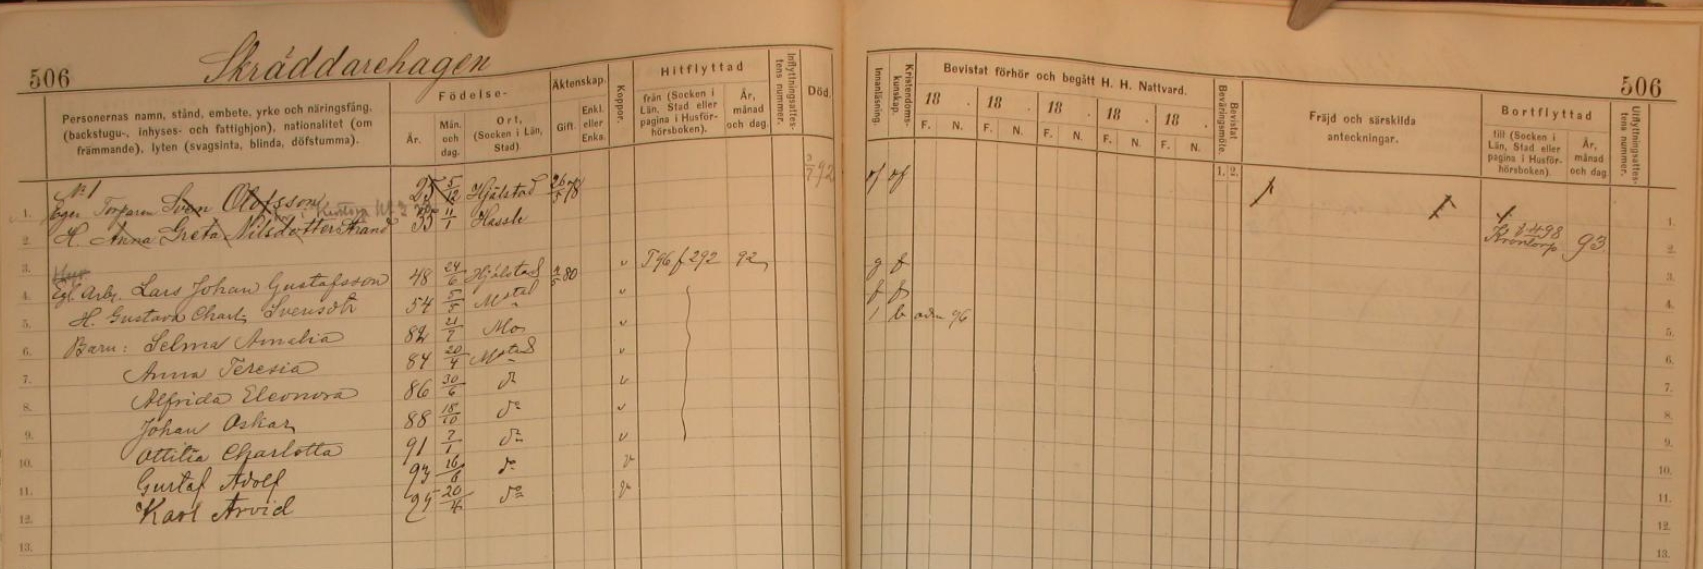 506
Skräddarehagen
506
Personernas namn, stånd, embete, yrke och näringsfång, (backstugu-, inhyses- och fattighjon), nationalitet (om främmande), lyten (svagsinta, blinda, döfstumma).
Födelse-
År.
Mån. och dag.
Ort, (Socken i Län, Stad).
Äktenskap.
Gift.
Enkl. eller Enka.
Koppor.
Hitflyttad
från (Socken i Län, Stad eller pagina i Husförhörsboken).
År, månad och dag.
Inflyttningsattestens nummer.
Död.
Innanläsning.
Kristendomskunskap.
Bevistat förhör och begått H. H. Nattvard.
18 . 18 . 18 . 18 . 18 .
F. N. F. N. F. N. F. N. F. N.
Bevistat Beväringsmöte.
1. 2.
Fräjd och särskilda anteckningar.
Bortflyttad
till (Socken i Län, Stad eller pagina i Husförhörsboken).
År, månad och dag.
Utflyttningsattestens nummer.
No 1
1. Eg. Torparen Sven Olofsson 25 5/12 Hjälstad 26/5 78 3/7 92 1.
2. H. Anna Greta Nilsdotter Strand 33 11/1 Hassle Krontorp 93 2.
3. 3.
4. Egl. Arb. Lars Johan Gustafsson 48 24/6 Hjälstad 80 T 96 f 292 92 g f 4.
5. H. Gustava Charl. Svensdtr 54 5/5 5.
6. Barn: Selma Amalia 82 21/7 Mo adm 96 6.
7. Anna Teresia 84 20/4 7.
8. Alfrida Eleonora 86 30/6 do 8.
9. Johan Oskar 88 18/10 do 9.
10. Ottilia Charlotta 91 7/1 do 10.
11. Gustaf Adolf 93 16/6 do 11.
12. Karl Arvid 95 20/4 do 12.
13. 13.